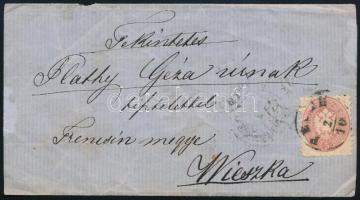 Tekintetes
Plathy Géza úrnak
tisztelettel
Trencsin megye
Wieszka
PESTH
2
10